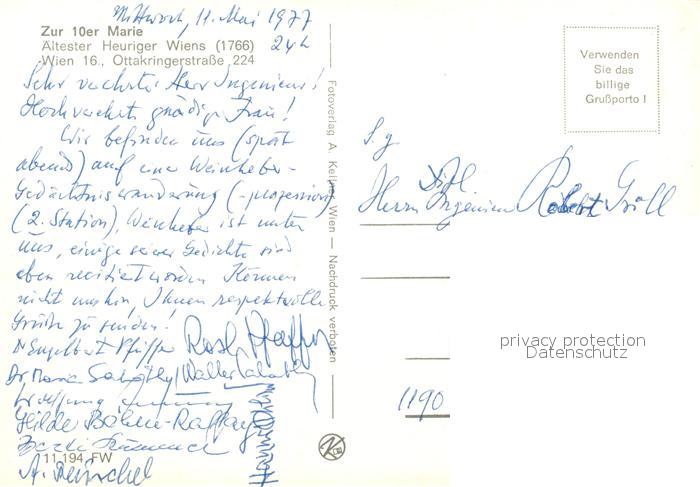 Mittwoch, 11. Mai 1977
24h
Zur 10er Marie
Ältester Heuriger Wiens (1766)
Wien 16., Ottakringerstraße 224
Sehr verehrter Herr Ingenieur!
Hochverehrte gnädige Frau!
Wir befinden uns (spät
abends) auf einer Weinheber-
Gedächtniswanderung (-prozession)
(2. Station), Weinheber ist unter
uns, einige seiner Gedichte sind
eben rezitiert worden. Können
nicht umhin, Ihnen respektvolle
Grüße zu senden!
Engelbert Pfeiffer
Dr. Maria Walter
Hilde Böhm-Raffay
11 194 FW
Fotoverlag A. Kellner, Wien — Nachdruck verboten
Verwenden
Sie das
billige
Grußporto !
S. g.
Herrn Dipl. Ingenieur Robert
1190
privacy protection
Datenschutz